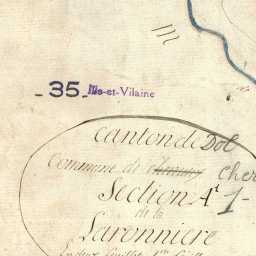 - 35 - Ille-et-Vilaine
Canton de Dol
Commune de Cher
Section A 1
de la
Laronniere